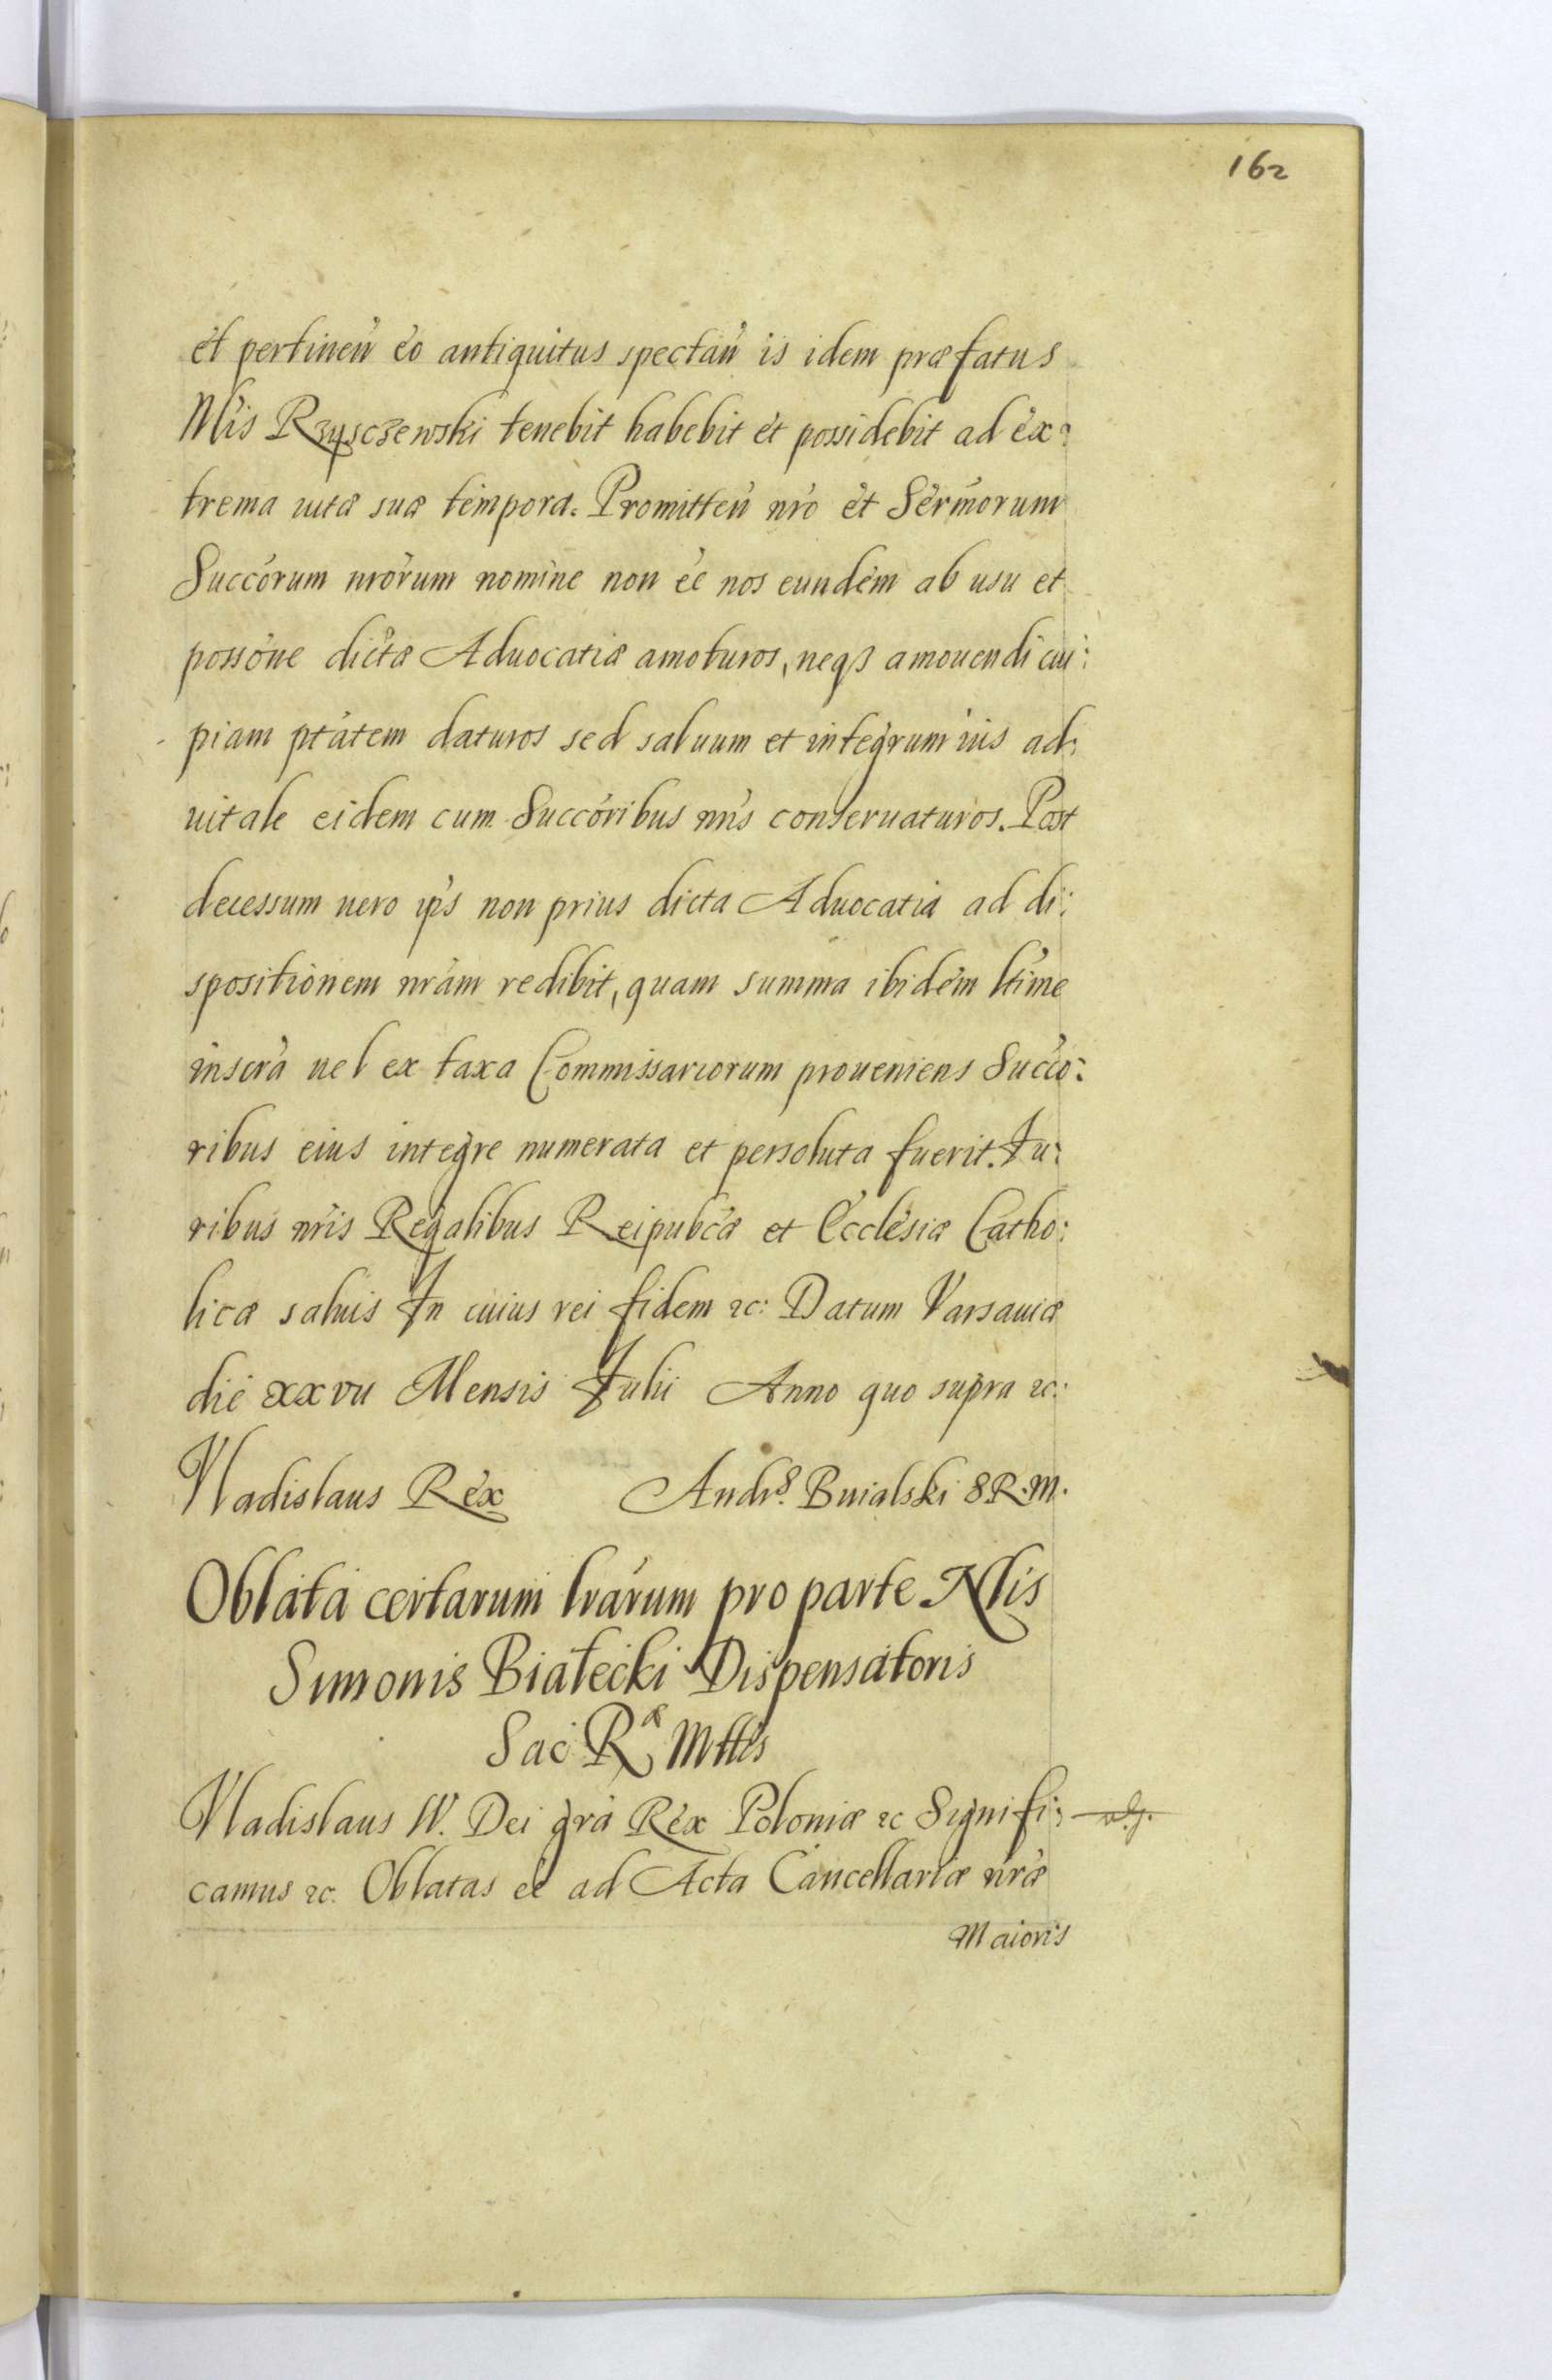 162
et pertinen̄ eo antiquitus spectan̄ is idem præfatus
Nlis Rzysczewski tenebit habebit et possidebit ad ex:
trema uitæ suæ tempora. Promitten̄ nr̄o et Ser̄morum
Succ̄orum nr̄orum nomine non ēē nos eundem ab usu et
poss̄one dictæ Aduocatiæ amoturos, neqß amouendi cui:
piam pt̄atem daturos sed saluum et integrum ius ad:
uitale eidem cum Succ̄oribus nr̄is conseruaturos. Post
decessum uero ip̄s non prius dicta Aduocatia ad di:
spositionem nr̄am redibit, quam summa ibidem lt̄ime
inscr̄a uel ex taxa Commissariorum proueniens Succ̄o:
ribus eius integre numerata et persoluta fuerit. Iu:
ribus nr̄is Regalibus Reipub̄cæ et Ecclesiæ Catho:
licæ saluis In cuius rei fidem ꝛc: Datum Varsauiæ
die xxvii Mensis Iulii Anno quo supra ꝛc:
Vladislaus Rex Andrs. Buialski S.R.M.
Oblata certarum lr̄arum pro parte Nlis
Simonis Białecki Dispensatoris
Sac̄ Ræ Mttis
Vladislaus IV. Dei gr̄a Rex Poloniæ ꝛc Signifi:
camus ꝛc. Oblatas ēē ad Acta Cancellariæ nr̄æ
Maioris